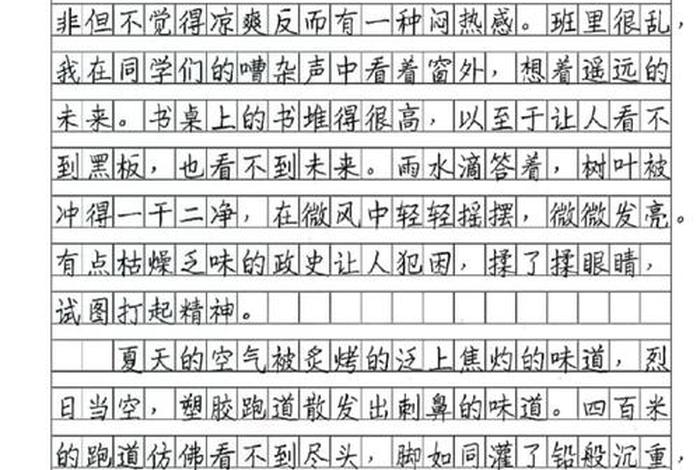 非但不觉得凉爽反而有一种闷热感。班里很乱，
我在同学们的嘈杂声中看着窗外，想着遥远的
未来。书桌上的书堆得很高，以至于让人看不
到黑板，也看不到未来。雨水滴答着，树叶被
冲得一干二净，在微风中轻轻摇摆，微微发亮。
有点枯燥乏味的政史让人犯困，揉了揉眼睛，
试图打起精神。
夏天的空气被炙烤的泛上焦灼的味道，烈
日当空，塑胶跑道散发出刺鼻的味道。四百米
的跑道仿佛看不到尽头，脚如同灌了铅般沉重，